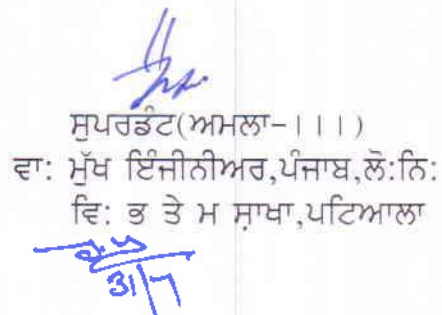 ਸੁਪਰਡੰਟ(ਅਮਲਾ-।।।)
ਵਾ: ਮੁੱਖ ਇੰਜੀਨੀਅਰ,ਪੰਜਾਬ,ਲੋ:ਨਿ:
ਵਿ: ਭ ਤੇ ਮ ਸ਼ਾਖਾ,ਪਟਿਆਲਾ
31/7